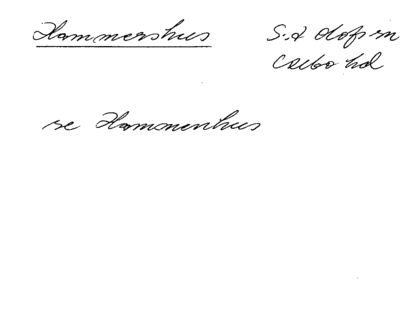 Hammershus S:t Olofs sn
Albo hd
se Hammenhus